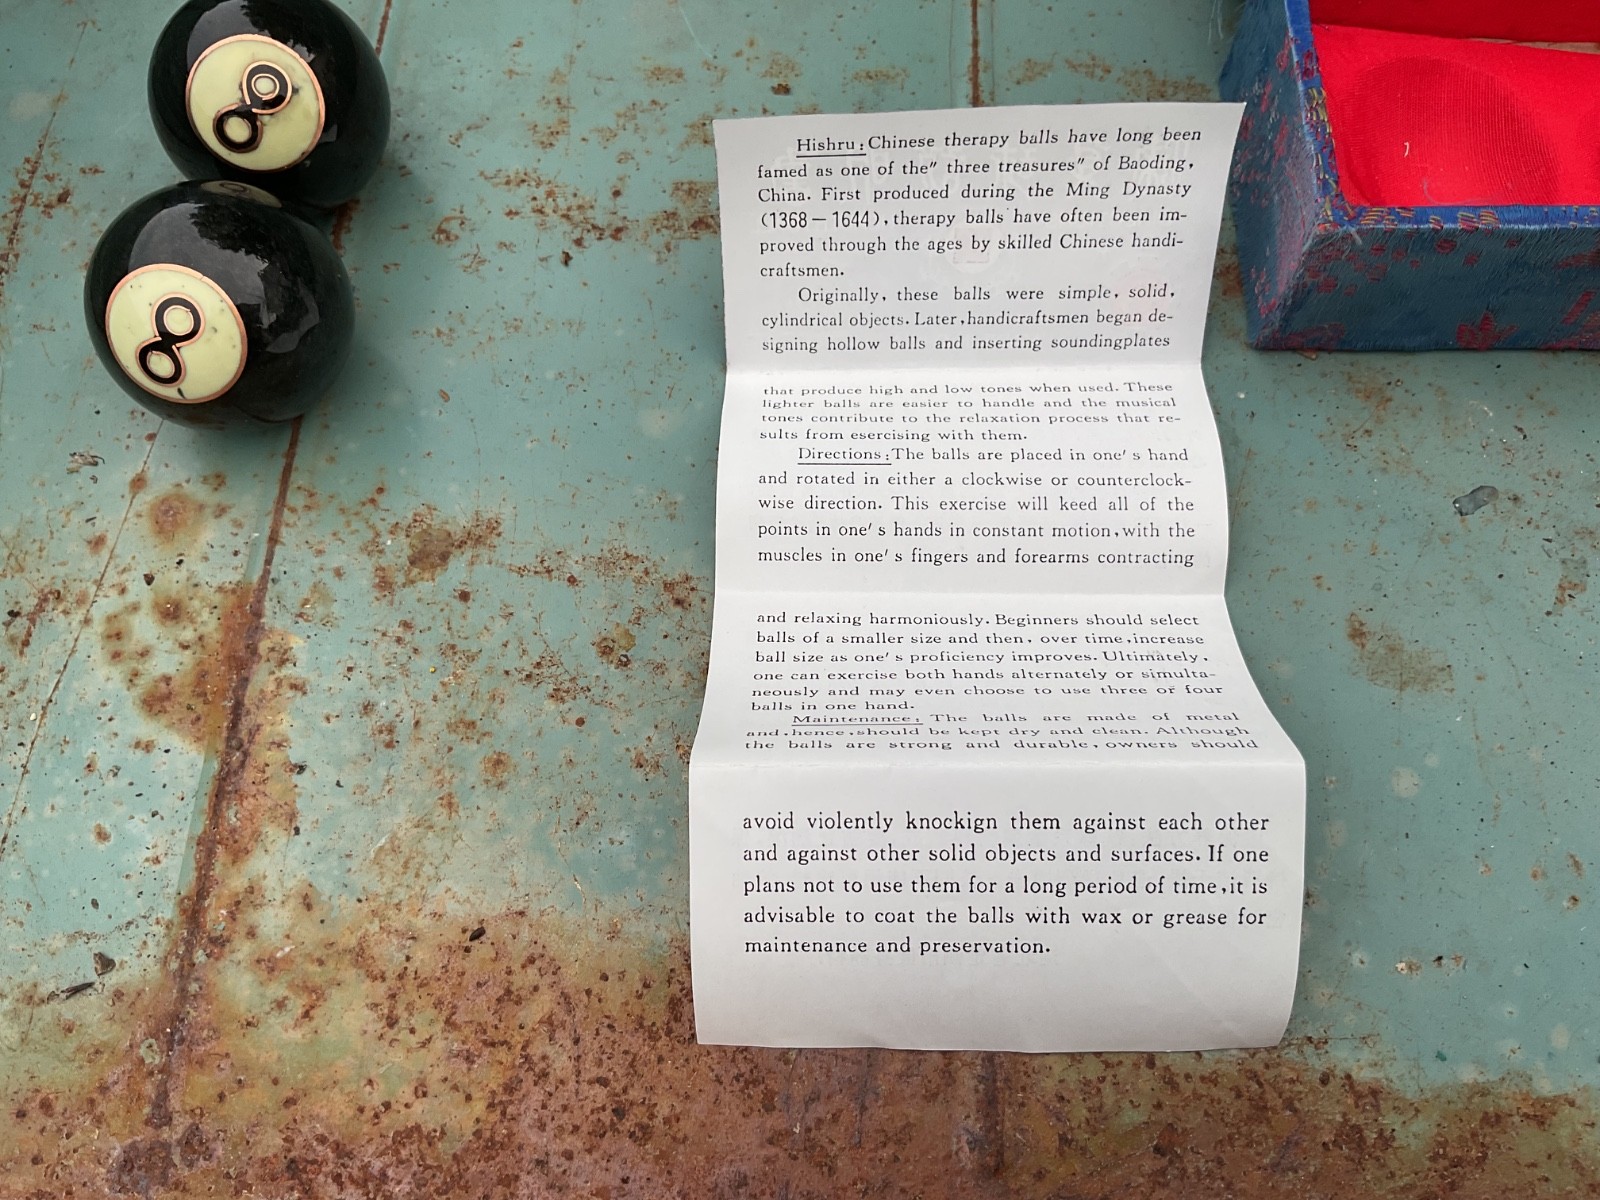 8
8
Hishru: Chinese therapy balls have long been
famed as one of the" three treasures" of Baoding,
China. First produced during the Ming Dynasty
(1368—1644), therapy balls have often been im-
proved through the ages by skilled Chinese handi-
craftsmen.
Originally, these balls were simple, solid,
cylindrical objects. Later, handicraftsmen began de-
signing hollow balls and inserting soundingplates
that produce high and low tones when used. These
lighter balls are easier to handle and the musical
tones contribute to the relaxation process that re-
sults from esercising with them.
Directions: The balls are placed in one's hand
and rotated in either a clockwise or counterclock-
wise direction. This exercise will keed all of the
points in one's hands in constant motion, with the
muscles in one's fingers and forearms contracting
and relaxing harmoniously. Beginners should select
balls of a smaller size and then, over time, increase
ball size as one's proficiency improves. Ultimately,
one can exercise both hands alternately or simulta-
neously and may even choose to use three or four
balls in one hand.
Maintenance: The balls are made of metal
and, hence, should be kept dry and clean. Although
the balls are strong and durable, owners should
avoid violently knockign them against each other
and against other solid objects and surfaces. If one
plans not to use them for a long period of time, it is
advisable to coat the balls with wax or grease for
maintenance and preservation.